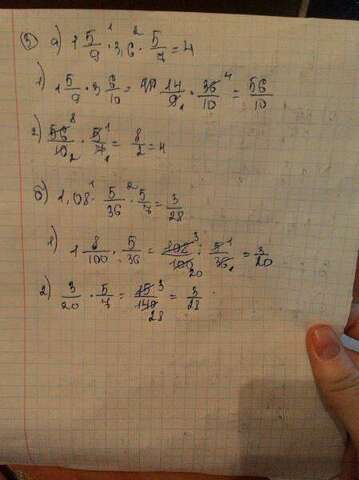 ③ а) 1 5/9 ·¹ 3,6 ·² 5/7 = 4
1) 1 5/9 · 3 6/10 = 14/9₁ · 36⁴/10 = 56/10
2) 56⁸/10₂ · 5¹/7₁ = 8/2 = 4
б) 1,08 ·¹ 5/36 ·² 5/7 = 3/28
1) 1 8/100 · 5/36 = 108³/100₂₀ · 5¹/36₁ = 3/20
2) 3/20 · 5/7 = 15³/140₂₈ = 3/28